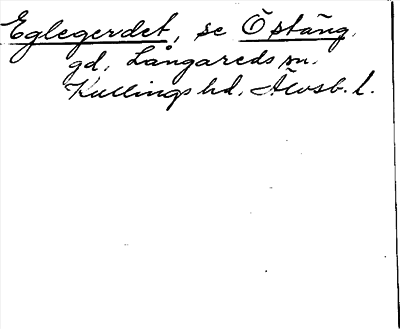 Eglegerdet, se Östäng,
gd, Långareds sn.
Kullings hd, Älvsb. l.